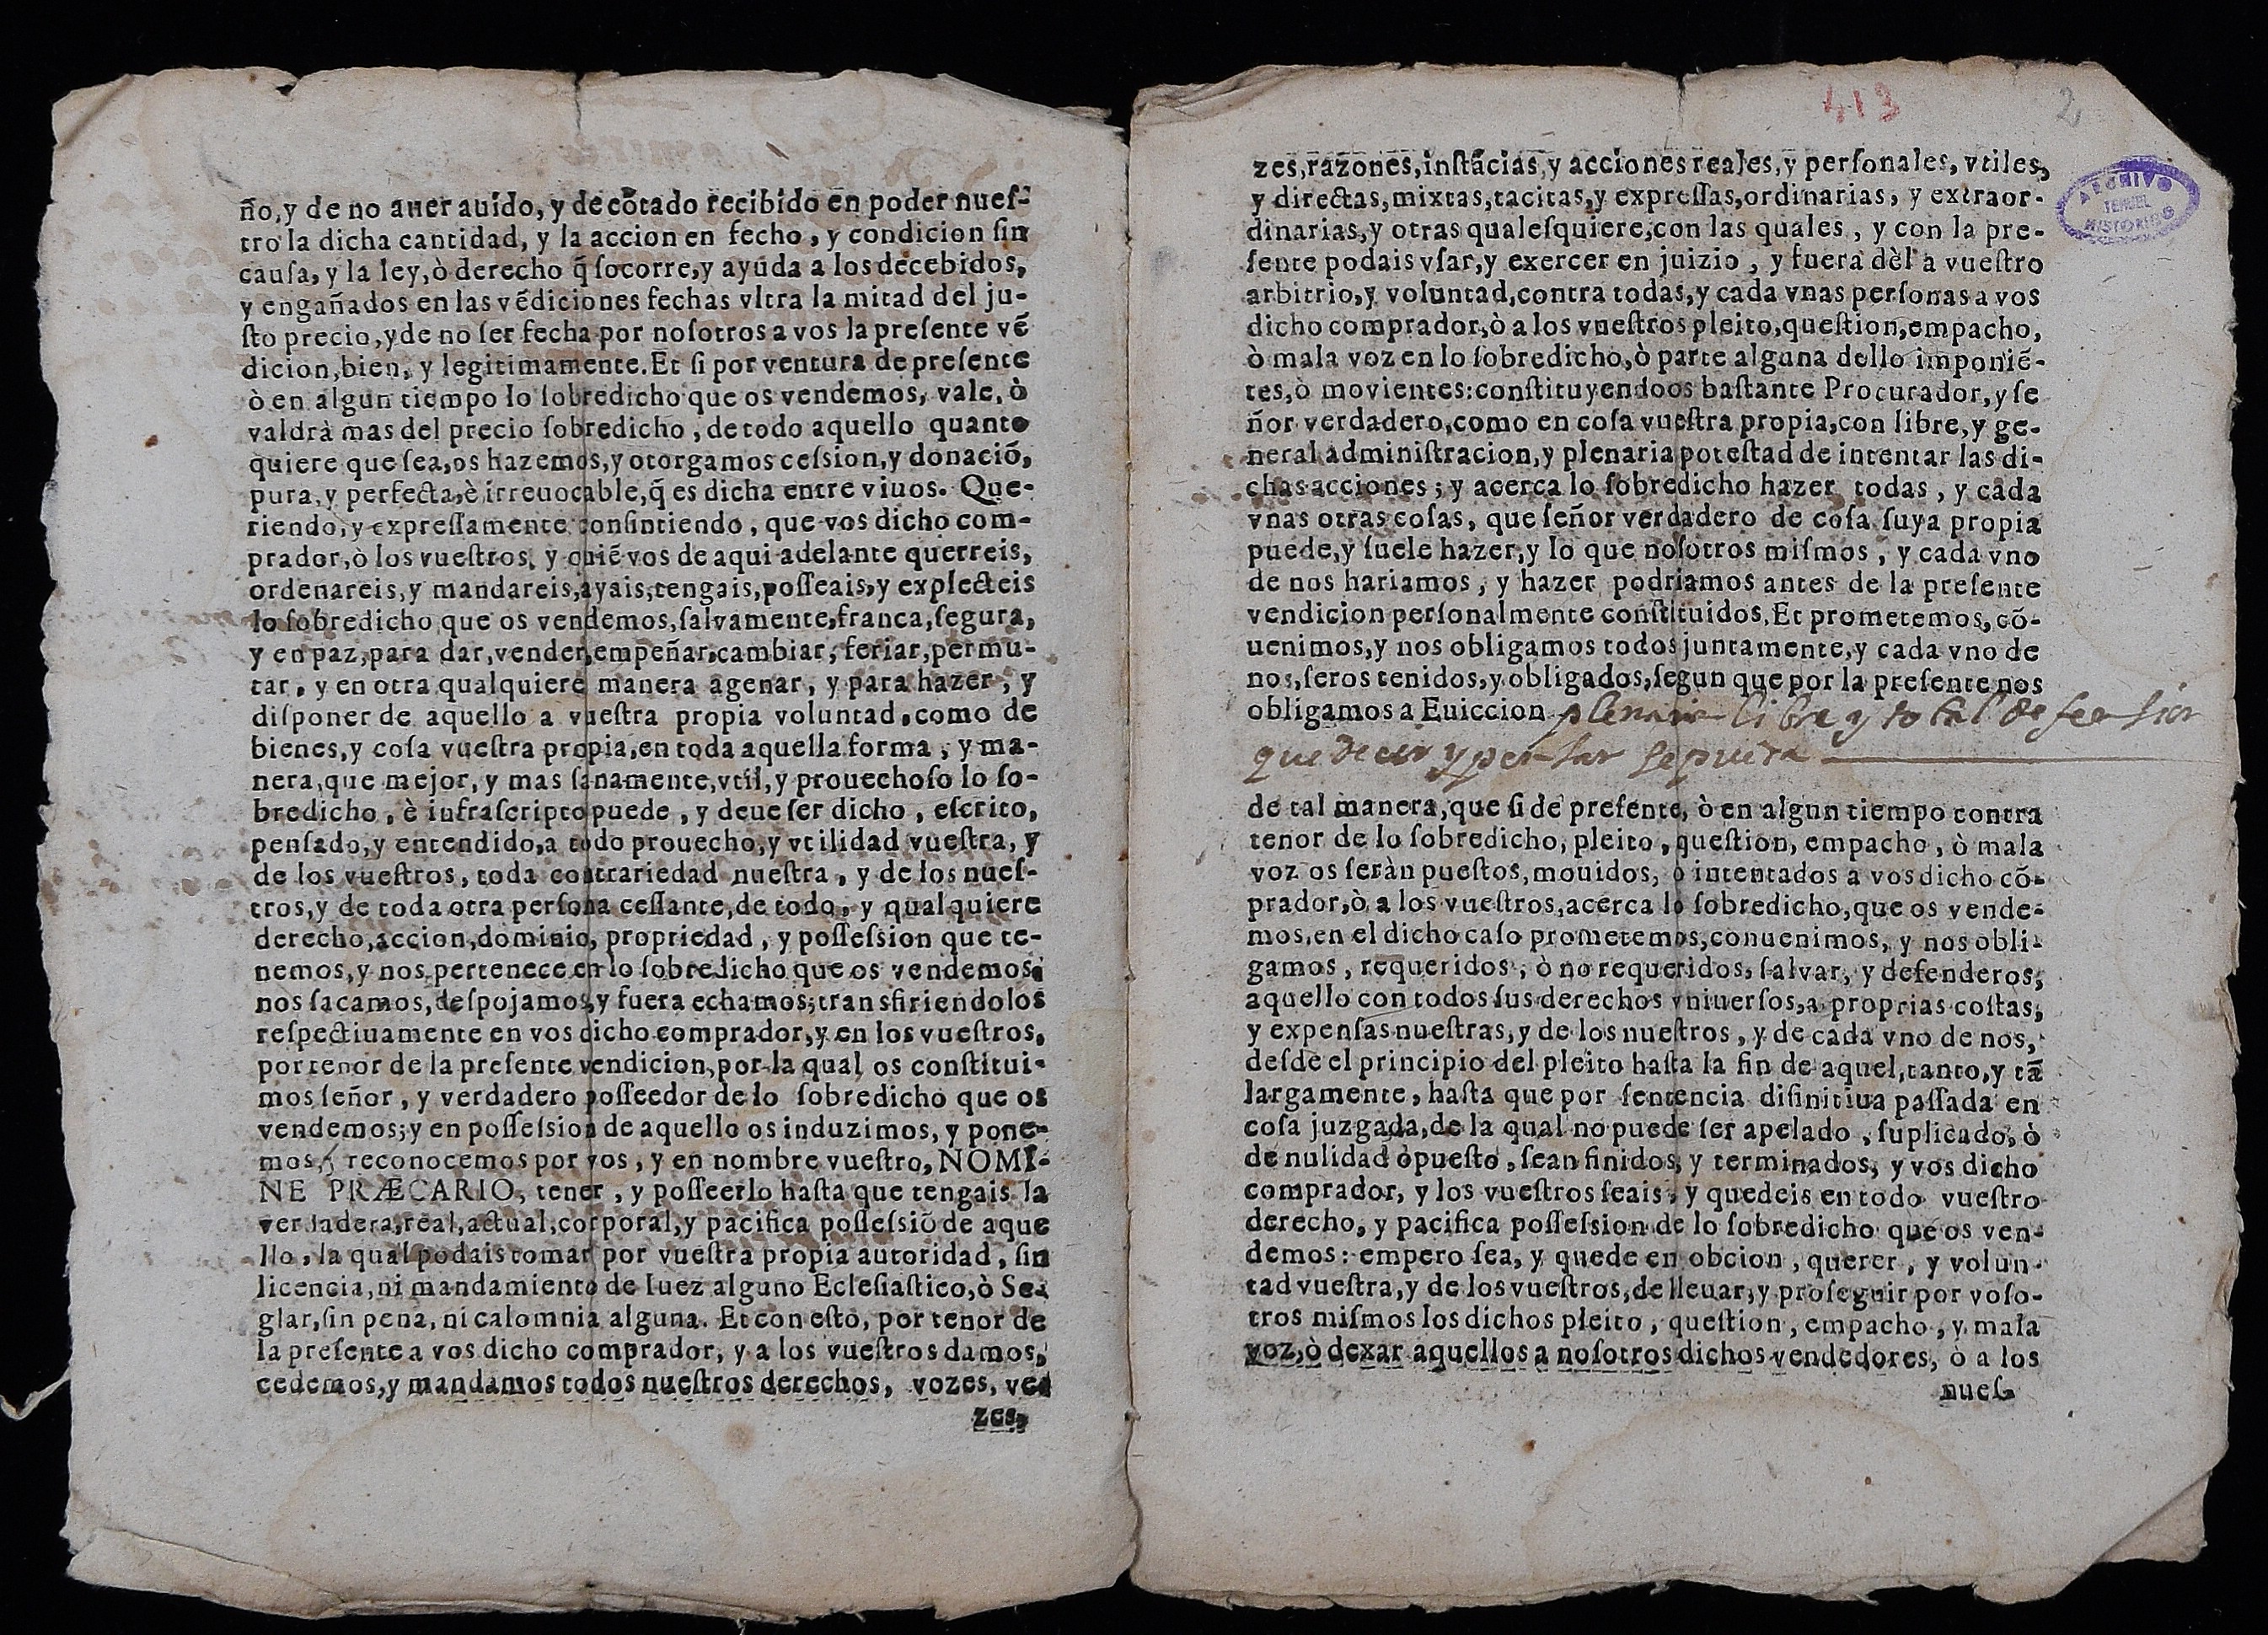 ño, y de no auer auido, y de cõtado recibido en poder nueſ-
tro la dicha cantidad, y la accion en fecho, y condicion ſin
cauſa, y la ley, ò derecho q̃ ſocorre, y ayuda a los decebidos,
y engañados en las vẽdiciones fechas vltra la mitad del ju-
ſto precio, y de no ſer fecha por noſotros a vos la preſente vẽ
dicion, bien, y legitimamente. Et ſi por ventura de preſente
ò en algun tiempo lo ſobredicho que os vendemos, vale, ò
valdrà mas del precio ſobredicho, de todo aquello quanto
quiere que ſea, os hazemos, y otorgamos ceſsion, y donaciõ,
pura, y perfecta, è irreuocable, q̃ es dicha entre viuos. Que-
riendo, y expreſſamente conſintiendo, que vos dicho com-
prador, ò los vueſtros, y quiẽ vos de aqui adelante querreis,
ordenareis, y mandareis, ayais, tengais, poſſeais, y explecteis
lo ſobredicho que os vendemos, ſalvamente, franca, ſegura,
y en paz, para dar, vender, empeñar, cambiar, feriar, permu-
tar, y en otra qualquiere manera agenar, y para hazer, y
diſponer de aquello a vueſtra propia voluntad, como de
bienes, y coſa vueſtra propia, en toda aquella forma, y ma-
nera, que mejor, y mas ſanamente, vtil, y prouechoſo lo ſo-
bredicho, è infraſcripto puede, y deue ſer dicho, eſcrito,
penſado, y entendido, a todo prouecho, y vtilidad vueſtra, y
de los vueſtros, toda contrariedad nueſtra, y de los nueſ-
tros, y de toda otra perſona ceſſante, de todo, y qualquiere
derecho, accion, dominio, propriedad, y poſſeſsion que te-
nemos, y nos pertenece en lo ſobredicho que os vendemos,
nos ſacamos, deſpojamos, y fuera echamos, transfiriendolos
reſpectiuamente en vos dicho comprador, y en los vueſtros,
por tenor de la preſente vendicion, por la qual os conſtitui-
mos ſeñor, y verdadero poſſeedor de lo ſobredicho que os
vendemos; y en poſſeſsion de aquello os induzimos, y pone-
mos, y reconocemos por vos, y en nombre vueſtro, NOMI-
NE PRÆCARIO, tener, y poſſeerlo haſta que tengais la
verdadera, real, actual, corporal, y pacifica poſſeſsiõ de aque
llo, la qual podais tomar por vueſtra propia autoridad, ſin
licencia, ni mandamiento de Iuez alguno Ecleſiaſtico, ò Se-
glar, ſin pena, ni calomnia alguna. Et con eſto, por tenor de
la preſente a vos dicho comprador, y a los vueſtros damos,
cedemos, y mandamos todos nueſtros derechos, vozes, ve-
zes,
413
2
ARCHIVO
TERUEL
HISTORICO
zes, razones, inſtãcias, y acciones reales, y perſonales, vtiles,
y directas, mixtas, tacitas, y expreſſas, ordinarias, y extraor-
dinarias, y otras qualeſquiere, con las quales, y con la pre-
ſente podais vſar, y exercer en juizio, y fuera dèl a vueſtro
arbitrio, y voluntad, contra todas, y cada vnas perſonas a vos
dicho comprador, ò a los vueſtros pleito, queſtion, empacho,
ò mala voz en lo ſobredicho, ò parte alguna dello imponiẽ-
tes, ò movientes: conſtituyendoos baſtante Procurador, y ſe
ñor verdadero, como en coſa vueſtra propia, con libre, y ge-
neral adminiſtracion, y plenaria poteſtad de intentar las di-
chas acciones; y acerca lo ſobredicho hazer todas, y cada
vnas otras coſas, que ſeñor verdadero de coſa ſuya propia
puede, y ſuele hazer, y lo que noſotros miſmos, y cada vno
de nos hariamos, y hazer podriamos antes de la preſente
vendicion perſonalmente conſtituidos. Et prometemos, cõ-
uenimos, y nos obligamos todos juntamente, y cada vno de
nos, ſeros tenidos, y obligados, ſegun que por la preſente nos
obligamos a Euiccion plenaria libre y total defension
que decir y pensar se pueda
de tal manera, que ſi de preſente, ò en algun tiempo contra
tenor de lo ſobredicho, pleito, queſtion, empacho, ò mala
voz os ſeràn pueſtos, mouidos, ò intentados a vos dicho cõ-
prador, ò a los vueſtros, acerca lo ſobredicho, que os vende-
mos, en el dicho caſo prometemos, conuenimos, y nos obli-
gamos, requeridos, ò no requeridos, ſalvar, y defenderos,
aquello con todos ſus derechos vniuerſos, a proprias coſtas,
y expenſas nueſtras, y de los nueſtros, y de cada vno de nos,
deſde el principio del pleito haſta la fin de aquel, tanto, y tã
largamente, haſta que por ſentencia difinitiua paſſada en
coſa juzgada, de la qual no puede ſer apelado, ſuplicado, ò
de nulidad opueſto, ſean finidos, y terminados, y vos dicho
comprador, y los vueſtros ſeais, y quedeis en todo vueſtro
derecho, y pacifica poſſeſsion de lo ſobredicho que os ven-
demos: empero ſea, y quede en obcion, querer, y volun-
tad vueſtra, y de los vueſtros, de lleuar, y proſeguir por voſo-
tros miſmos los dichos pleito, queſtion, empacho, y mala
voz, ò dexar aquellos a noſotros dichos vendedores, ò a los
nueſ-